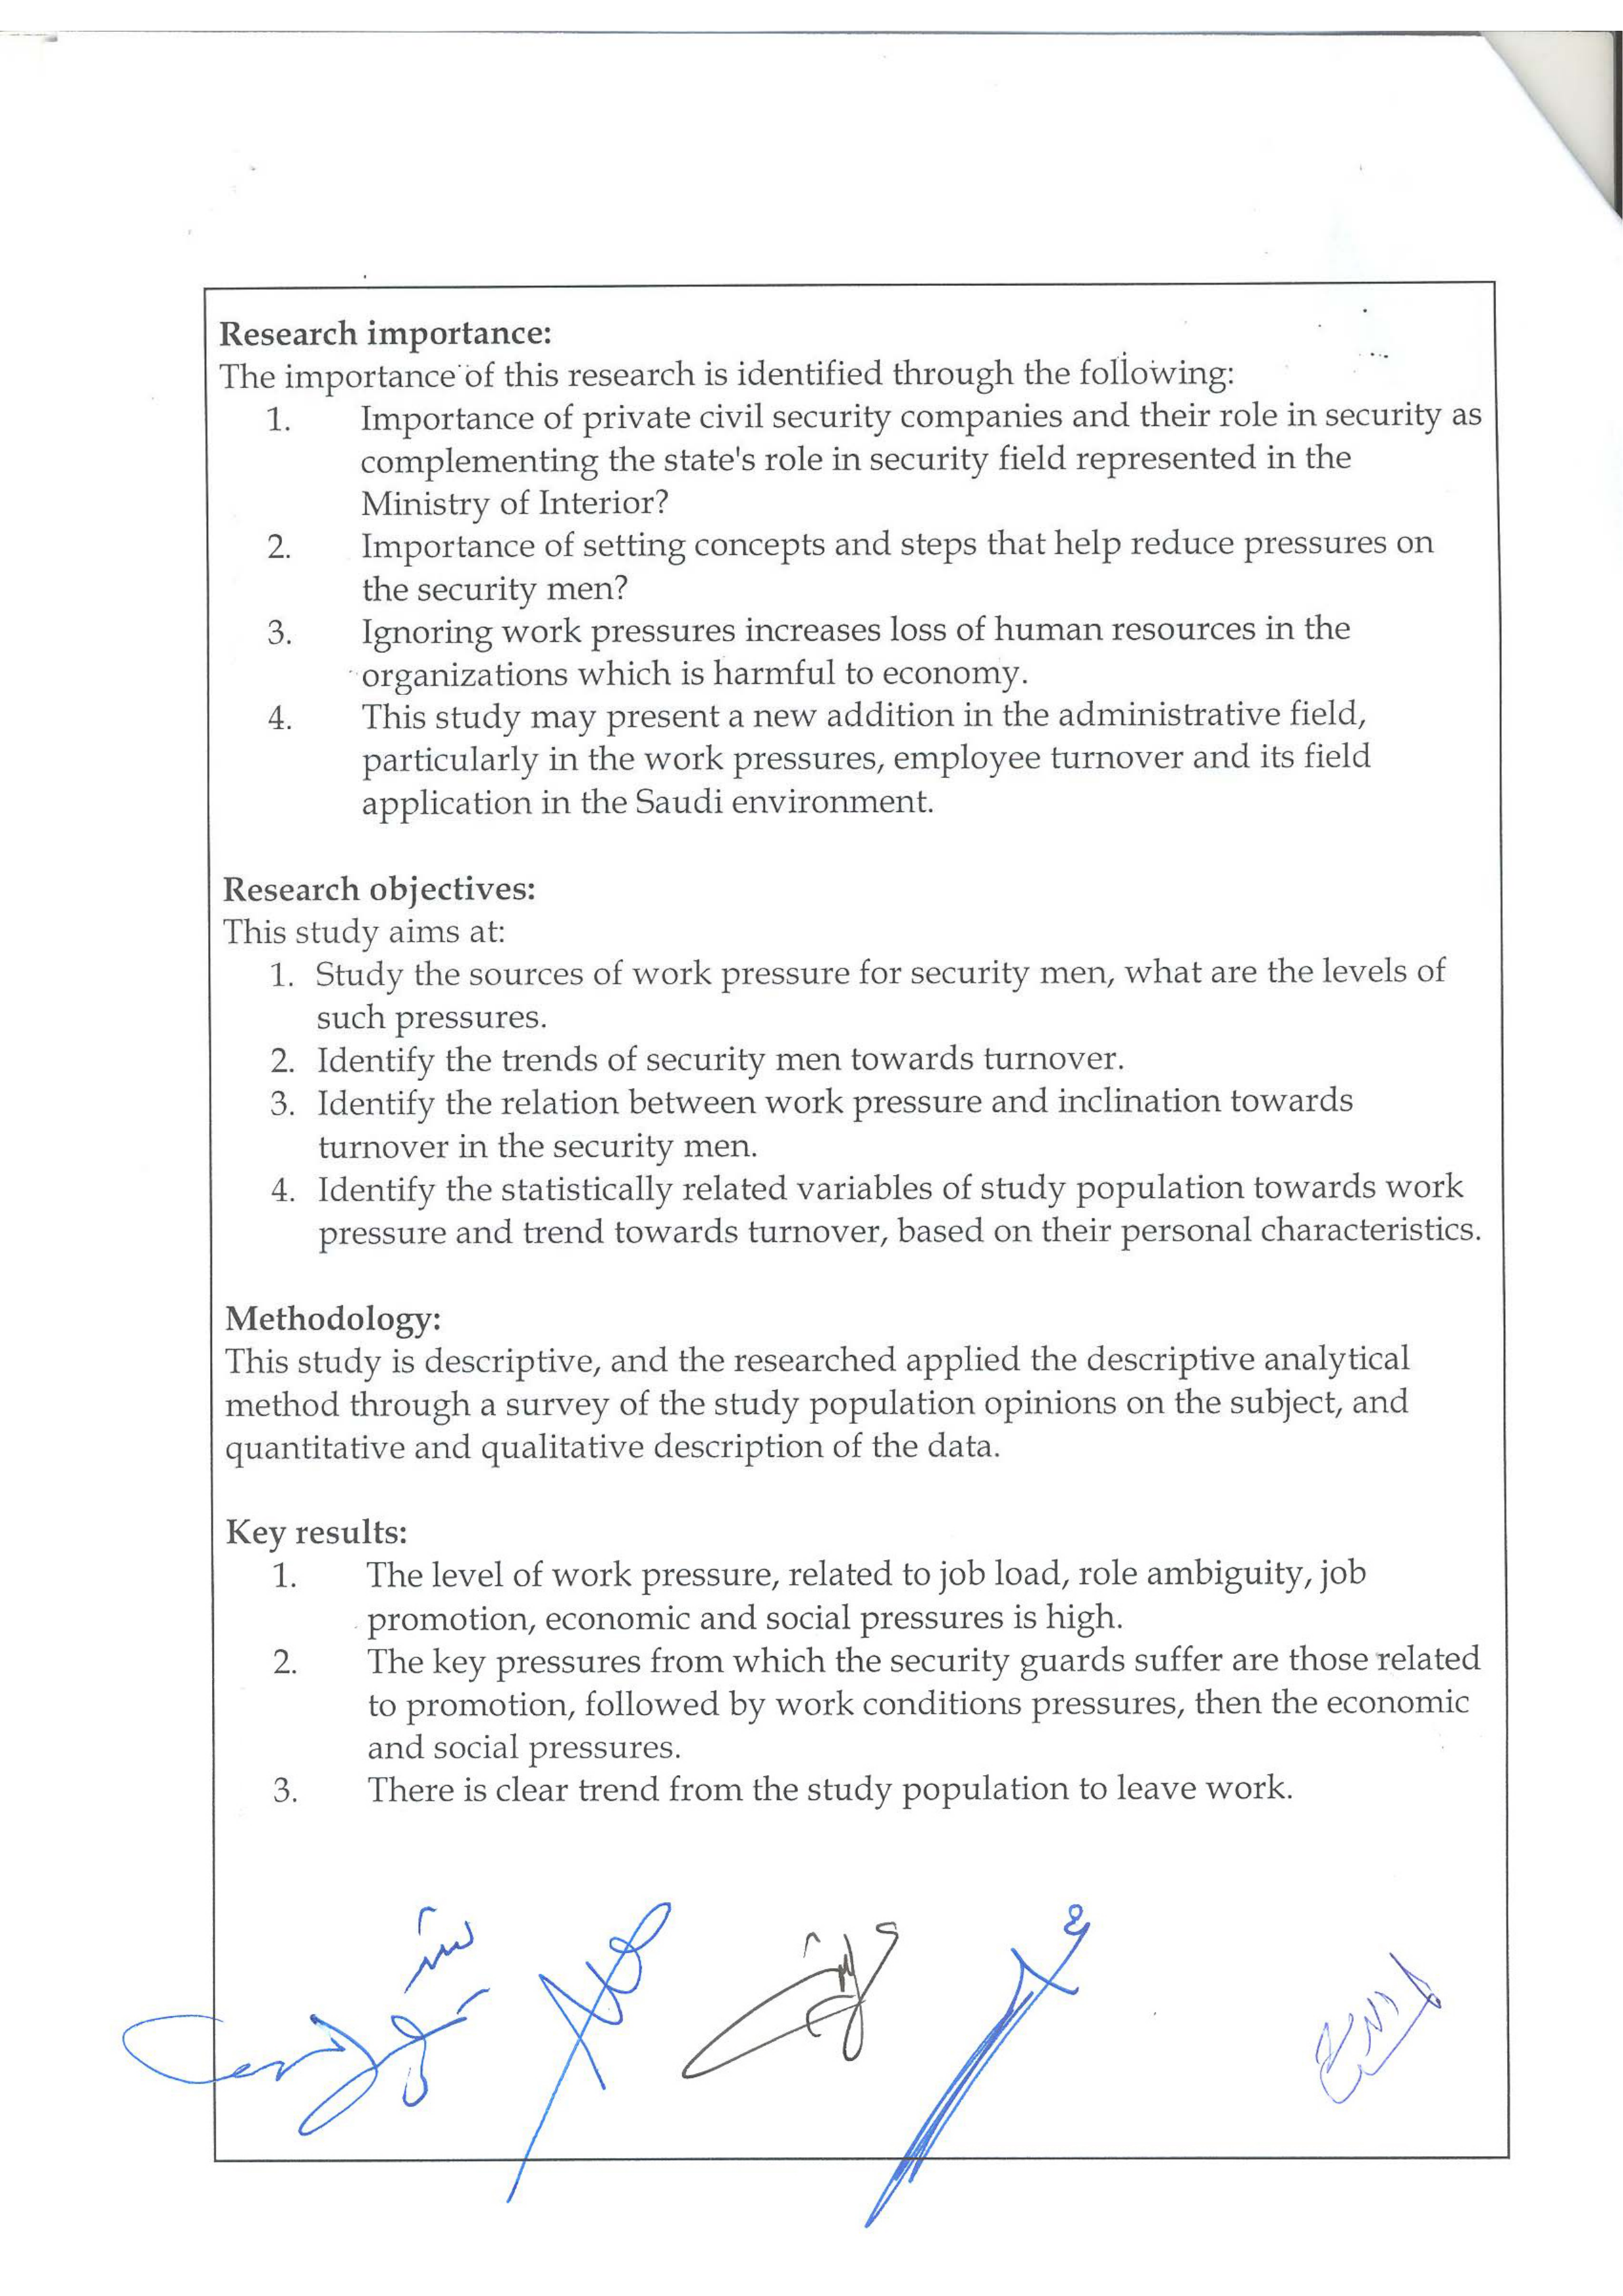 Research importance:
The importance of this research is identified through the following:
1. Importance of private civil security companies and their role in security as
complementing the state's role in security field represented in the
Ministry of Interior?
2. Importance of setting concepts and steps that help reduce pressures on
the security men?
3. Ignoring work pressures increases loss of human resources in the
organizations which is harmful to economy.
4. This study may present a new addition in the administrative field,
particularly in the work pressures, employee turnover and its field
application in the Saudi environment.
Research objectives:
This study aims at:
1. Study the sources of work pressure for security men, what are the levels of
such pressures.
2. Identify the trends of security men towards turnover.
3. Identify the relation between work pressure and inclination towards
turnover in the security men.
4. Identify the statistically related variables of study population towards work
pressure and trend towards turnover, based on their personal characteristics.
Methodology:
This study is descriptive, and the researched applied the descriptive analytical
method through a survey of the study population opinions on the subject, and
quantitative and qualitative description of the data.
Key results:
1. The level of work pressure, related to job load, role ambiguity, job
promotion, economic and social pressures is high.
2. The key pressures from which the security guards suffer are those related
to promotion, followed by work conditions pressures, then the economic
and social pressures.
3. There is clear trend from the study population to leave work.